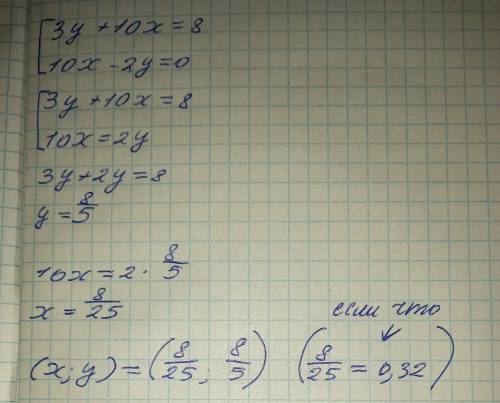 3y + 10x = 8
10x - 2y = 0
3y + 10x = 8
10x = 2y
3y + 2y = 8
y = 8/5
10x = 2 · 8/5
x = 8/25
если что
(x; y) = (8/25; 8/5) (8/25 = 0,32)